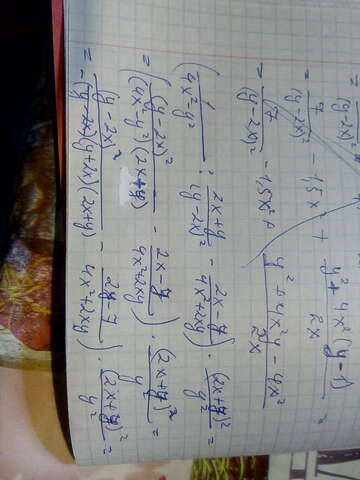 = 7/(y-2x)²
= 7/(y-2x)² - 1,5x² + (y²+4x²(y-1))/2x =
= 7/(y-2x)² - 1,5x² + (y²+4x²y-4x²)/2x
(1/(4x²-y²) : (2x+y)/(y-2x)² - (2x-y)/(4x²+2xy)) · (2x+y)²/y² =
= ((y-2x)²/(4x²-y²)(2x+y) - (2x-y)/(4x²+2xy)) · (2x+y)²/y =
= -((y-2x)²/(y-2x)(y+2x)(2x+y) - /(4x²+2xy)) · (2x+y)²/y² =